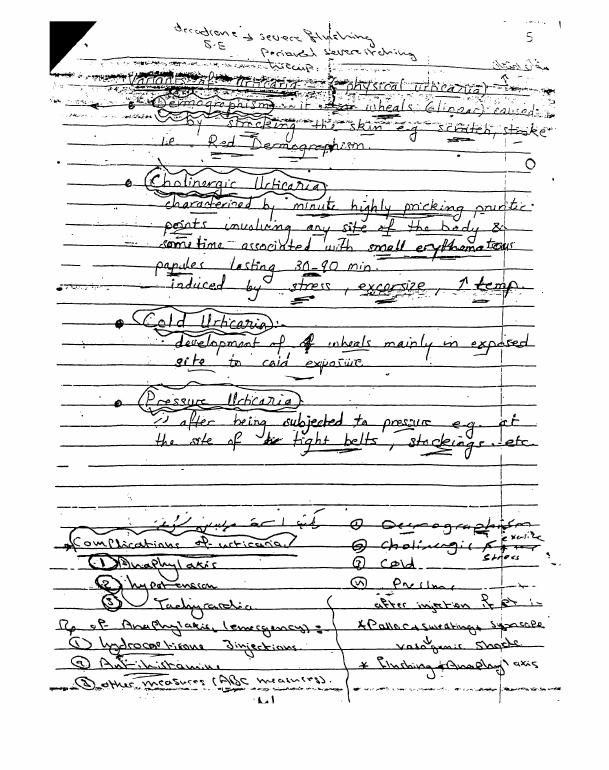 decadrone → severe flushing
5
S.E
Perioral severe itching
hiccup.
Variants of Urticaria (physical urticaria)
Dermographism :- if wheals (linear) caused
by stroking the skin e.g scratch, stroke
i.e. Red Dermographism.
Cholinergic Urticaria
characterized by minute highly pricking pruritic
points involving any site of the body &
some time associated with small erythematous
papules lasting 30-90 min.
induced by stress, excersize, ↑ temp.
Cold Urticaria :-
development of wheals mainly in exposed
site to cold exposure.
Pressure Urticaria :
after being subjected to pressure e.g. at
the site of tight belts, stockings.. etc
① Dermographism
Complications of urticaria
② Cholinergic
Stress
① Anaphylaxis
③ Cold
② hypotension
Pressure
③ Tachycardia
after injection if pt is
of Anaphylaxis (emergency) =
* Pallor + sweating + syncope
① hydrocortisone injections
vasogenic shock
② Antihistamine
* Flushing → Anaphylaxis
③ other measures (ABC measures).